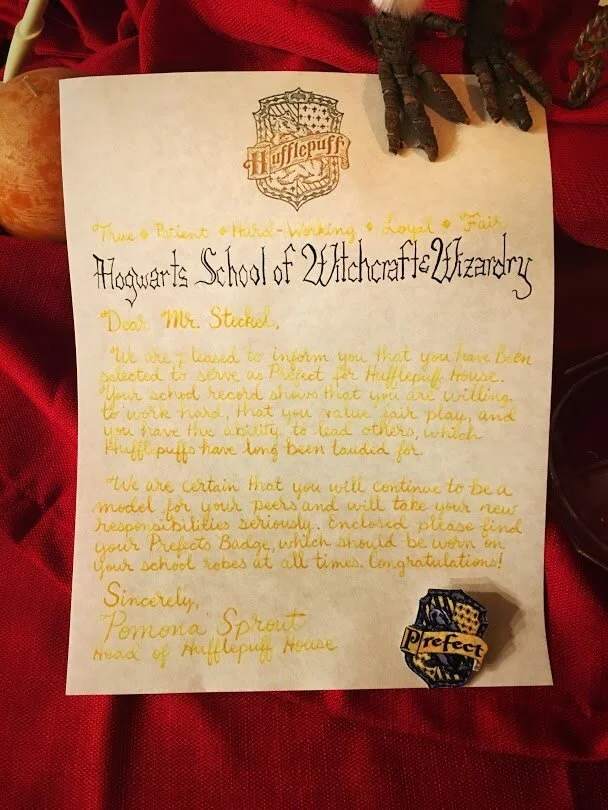 Hufflepuff
True • Patient • Hard-Working • Loyal • Fair
Hogwarts School of Witchcraft & Wizardry
Dear Mr. Stickel,
We are pleased to inform you that you have been
selected to serve as Prefect for Hufflepuff House.
Your school record shows that you are willing
to work hard, that you value fair play, and
you have the ability to lead others, which
Hufflepuffs have long been lauded for.
We are certain that you will continue to be a
model for your peers and will take your new
responsibilities seriously. Enclosed please find
your Prefects Badge, which should be worn on
your school robes at all times. Congratulations!
Sincerely,
Pomona Sprout
Head of Hufflepuff House
Prefect